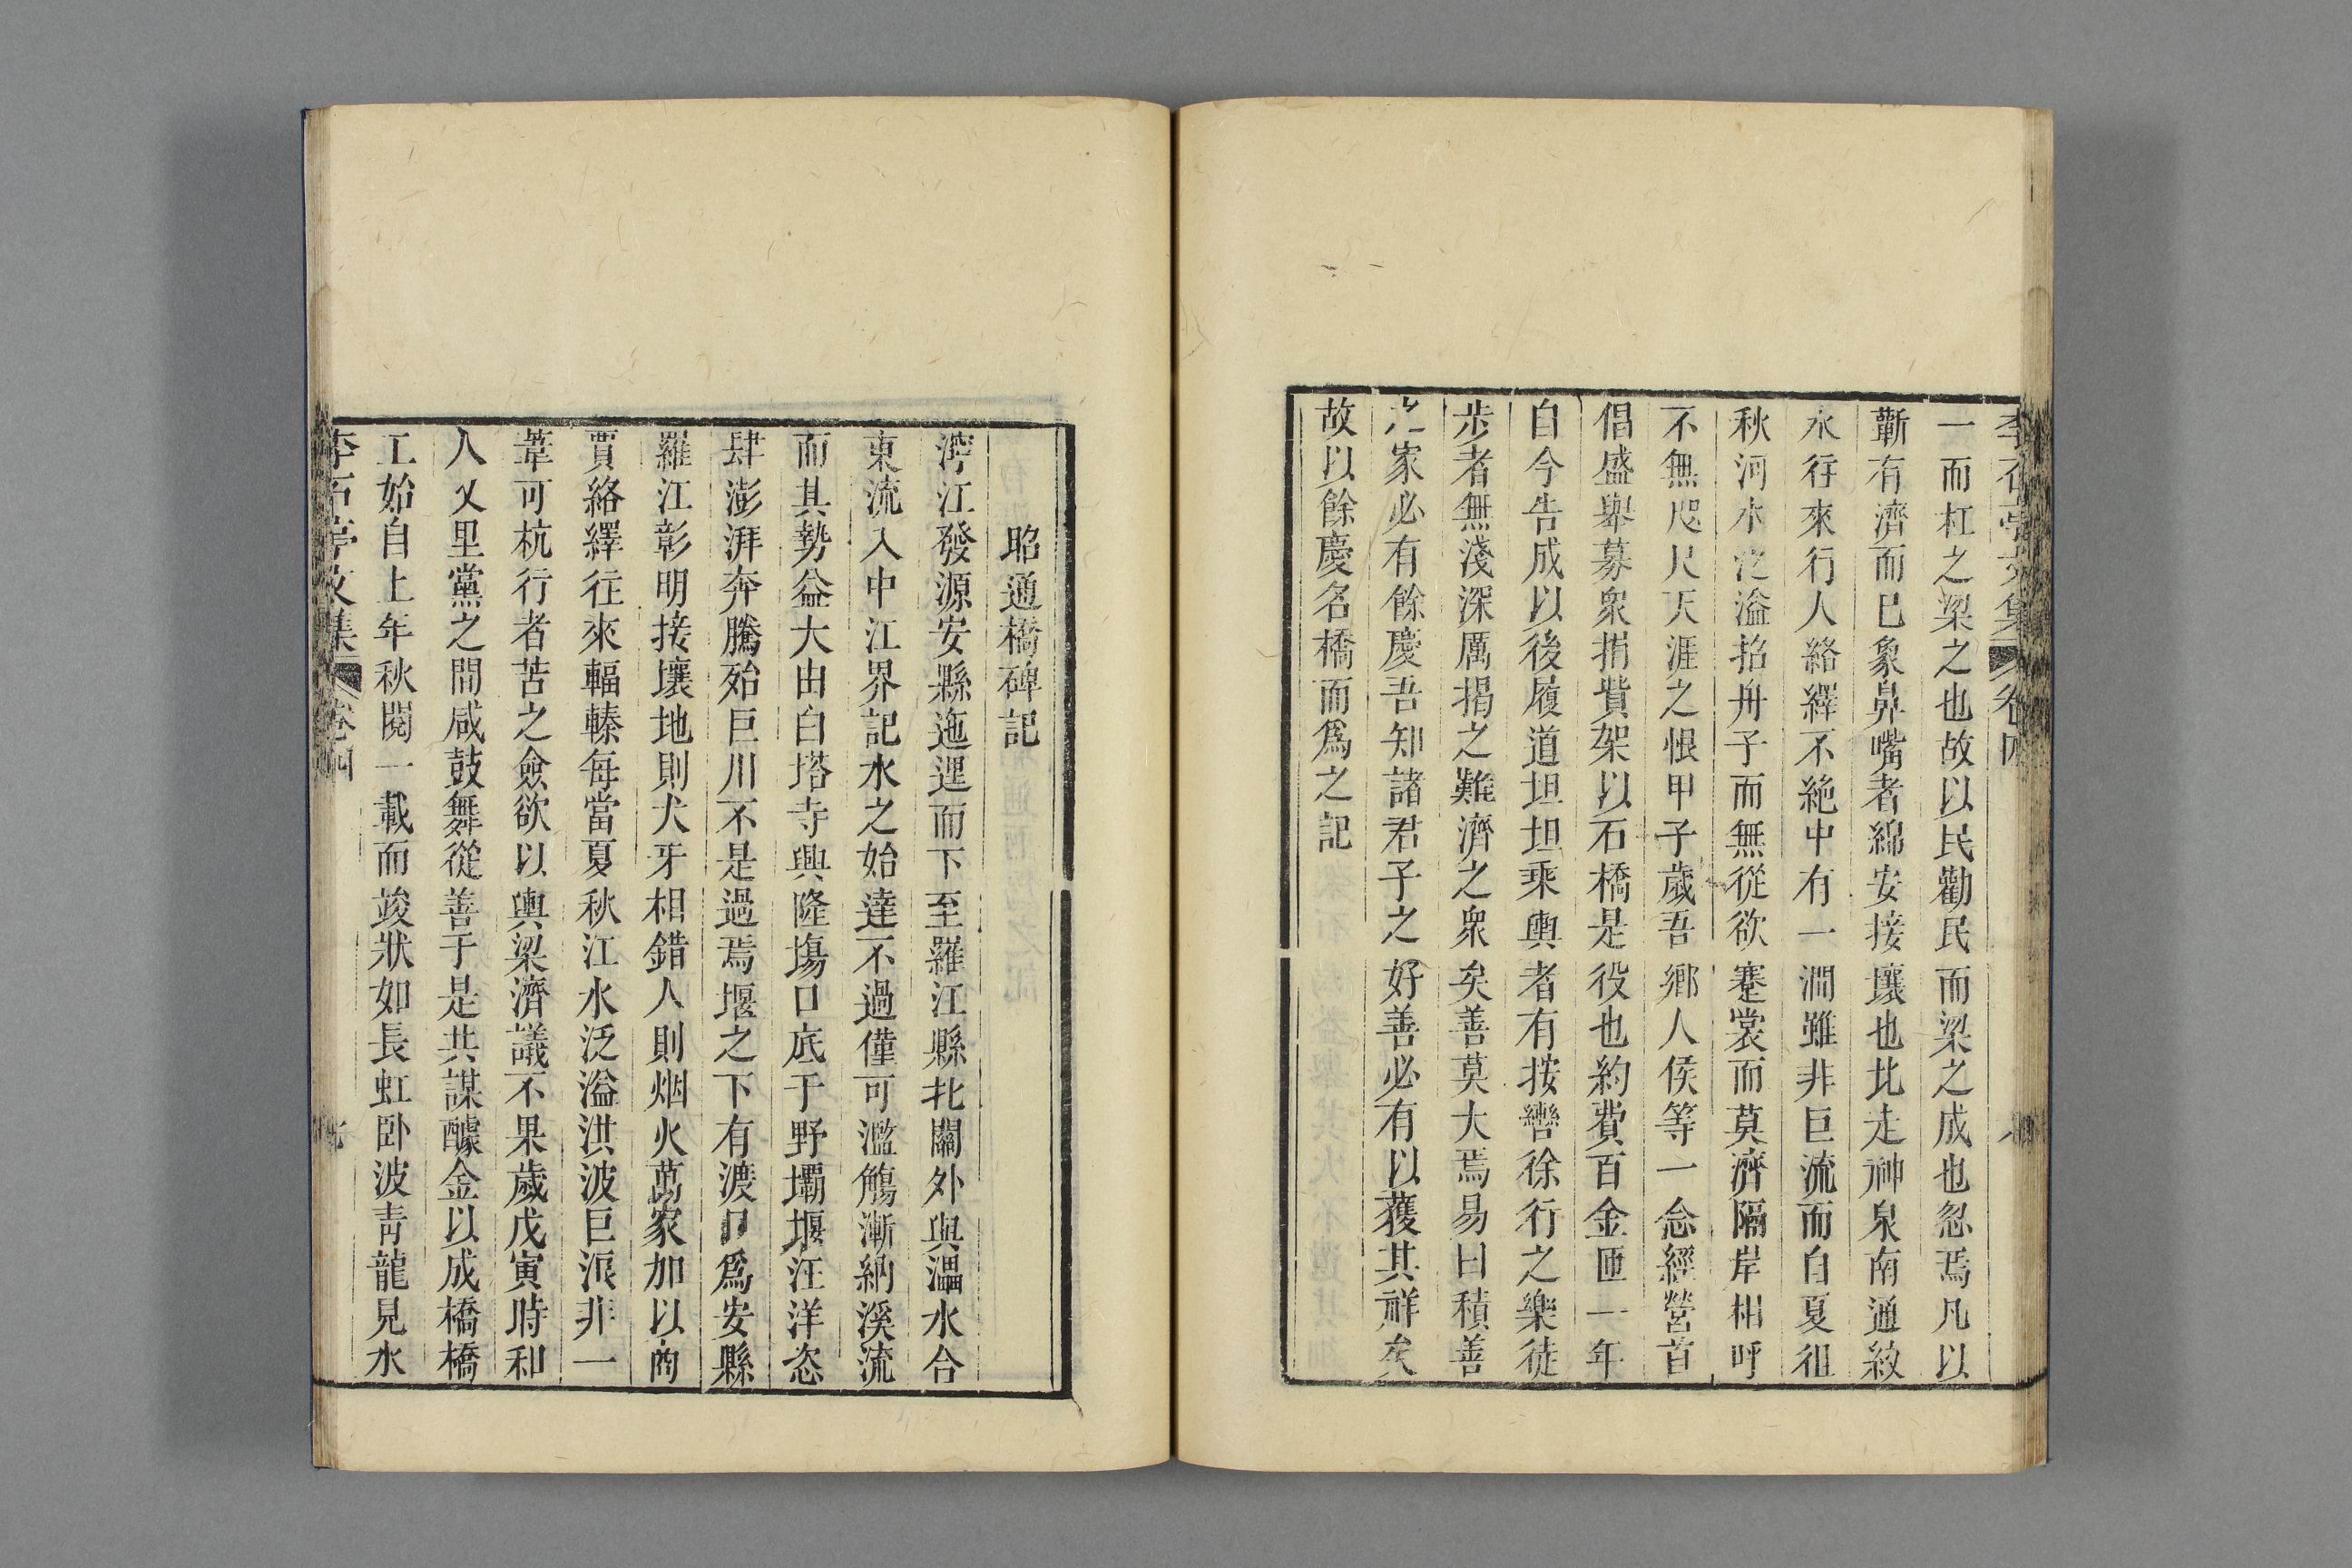 李石亭文集 卷四 八
一而杠之梁之也故以民勸民而梁之成也忽焉凡以
蘄有濟而已象鼻嘴者綿安接壤也北走神泉南通紋
水往來行人絡繹不絶中有一澗雖非巨流而自夏徂
秋河水泛溢招舟子而無從欲蹇裳而莫濟隔岸相呼
不無咫尺天涯之恨甲子歲吾鄉人侯等一念經營首
倡盛舉募衆捐貲架以石橋是役也約費百金匝一年
自今告成以後履道坦坦乘輿者有按轡徐行之樂徒
步者無淺深厲揭之難濟之衆矣善莫大焉易曰積善
之家必有餘慶吾知諸君子之好善必有以獲其祥矣
故以餘慶名橋而爲之記
昭通橋碑記
濘江發源安縣迤邐而下至羅江縣北關外與溫水合
東流入中江界記水之始達不過僅可濫觴漸納溪流
而其勢益大由白塔寺興隆塲口底于野壩堰汪洋恣
肆澎湃奔騰殆巨川不是過焉堰之下有渡口爲安縣
羅江彰明接壤地則犬牙相錯人則烟火萬家加以商
賈絡繹往來輻輳每當夏秋江水泛溢洪波巨浪非一
葦可杭行者苦之僉欲以輿梁濟議不果歲戊寅時和
人乂里黨之間咸鼓舞從善于是共謀醵金以成橋橋
工始自上年秋閱一載而竣狀如長虹卧波青龍見水
李石亭文集 卷四 九